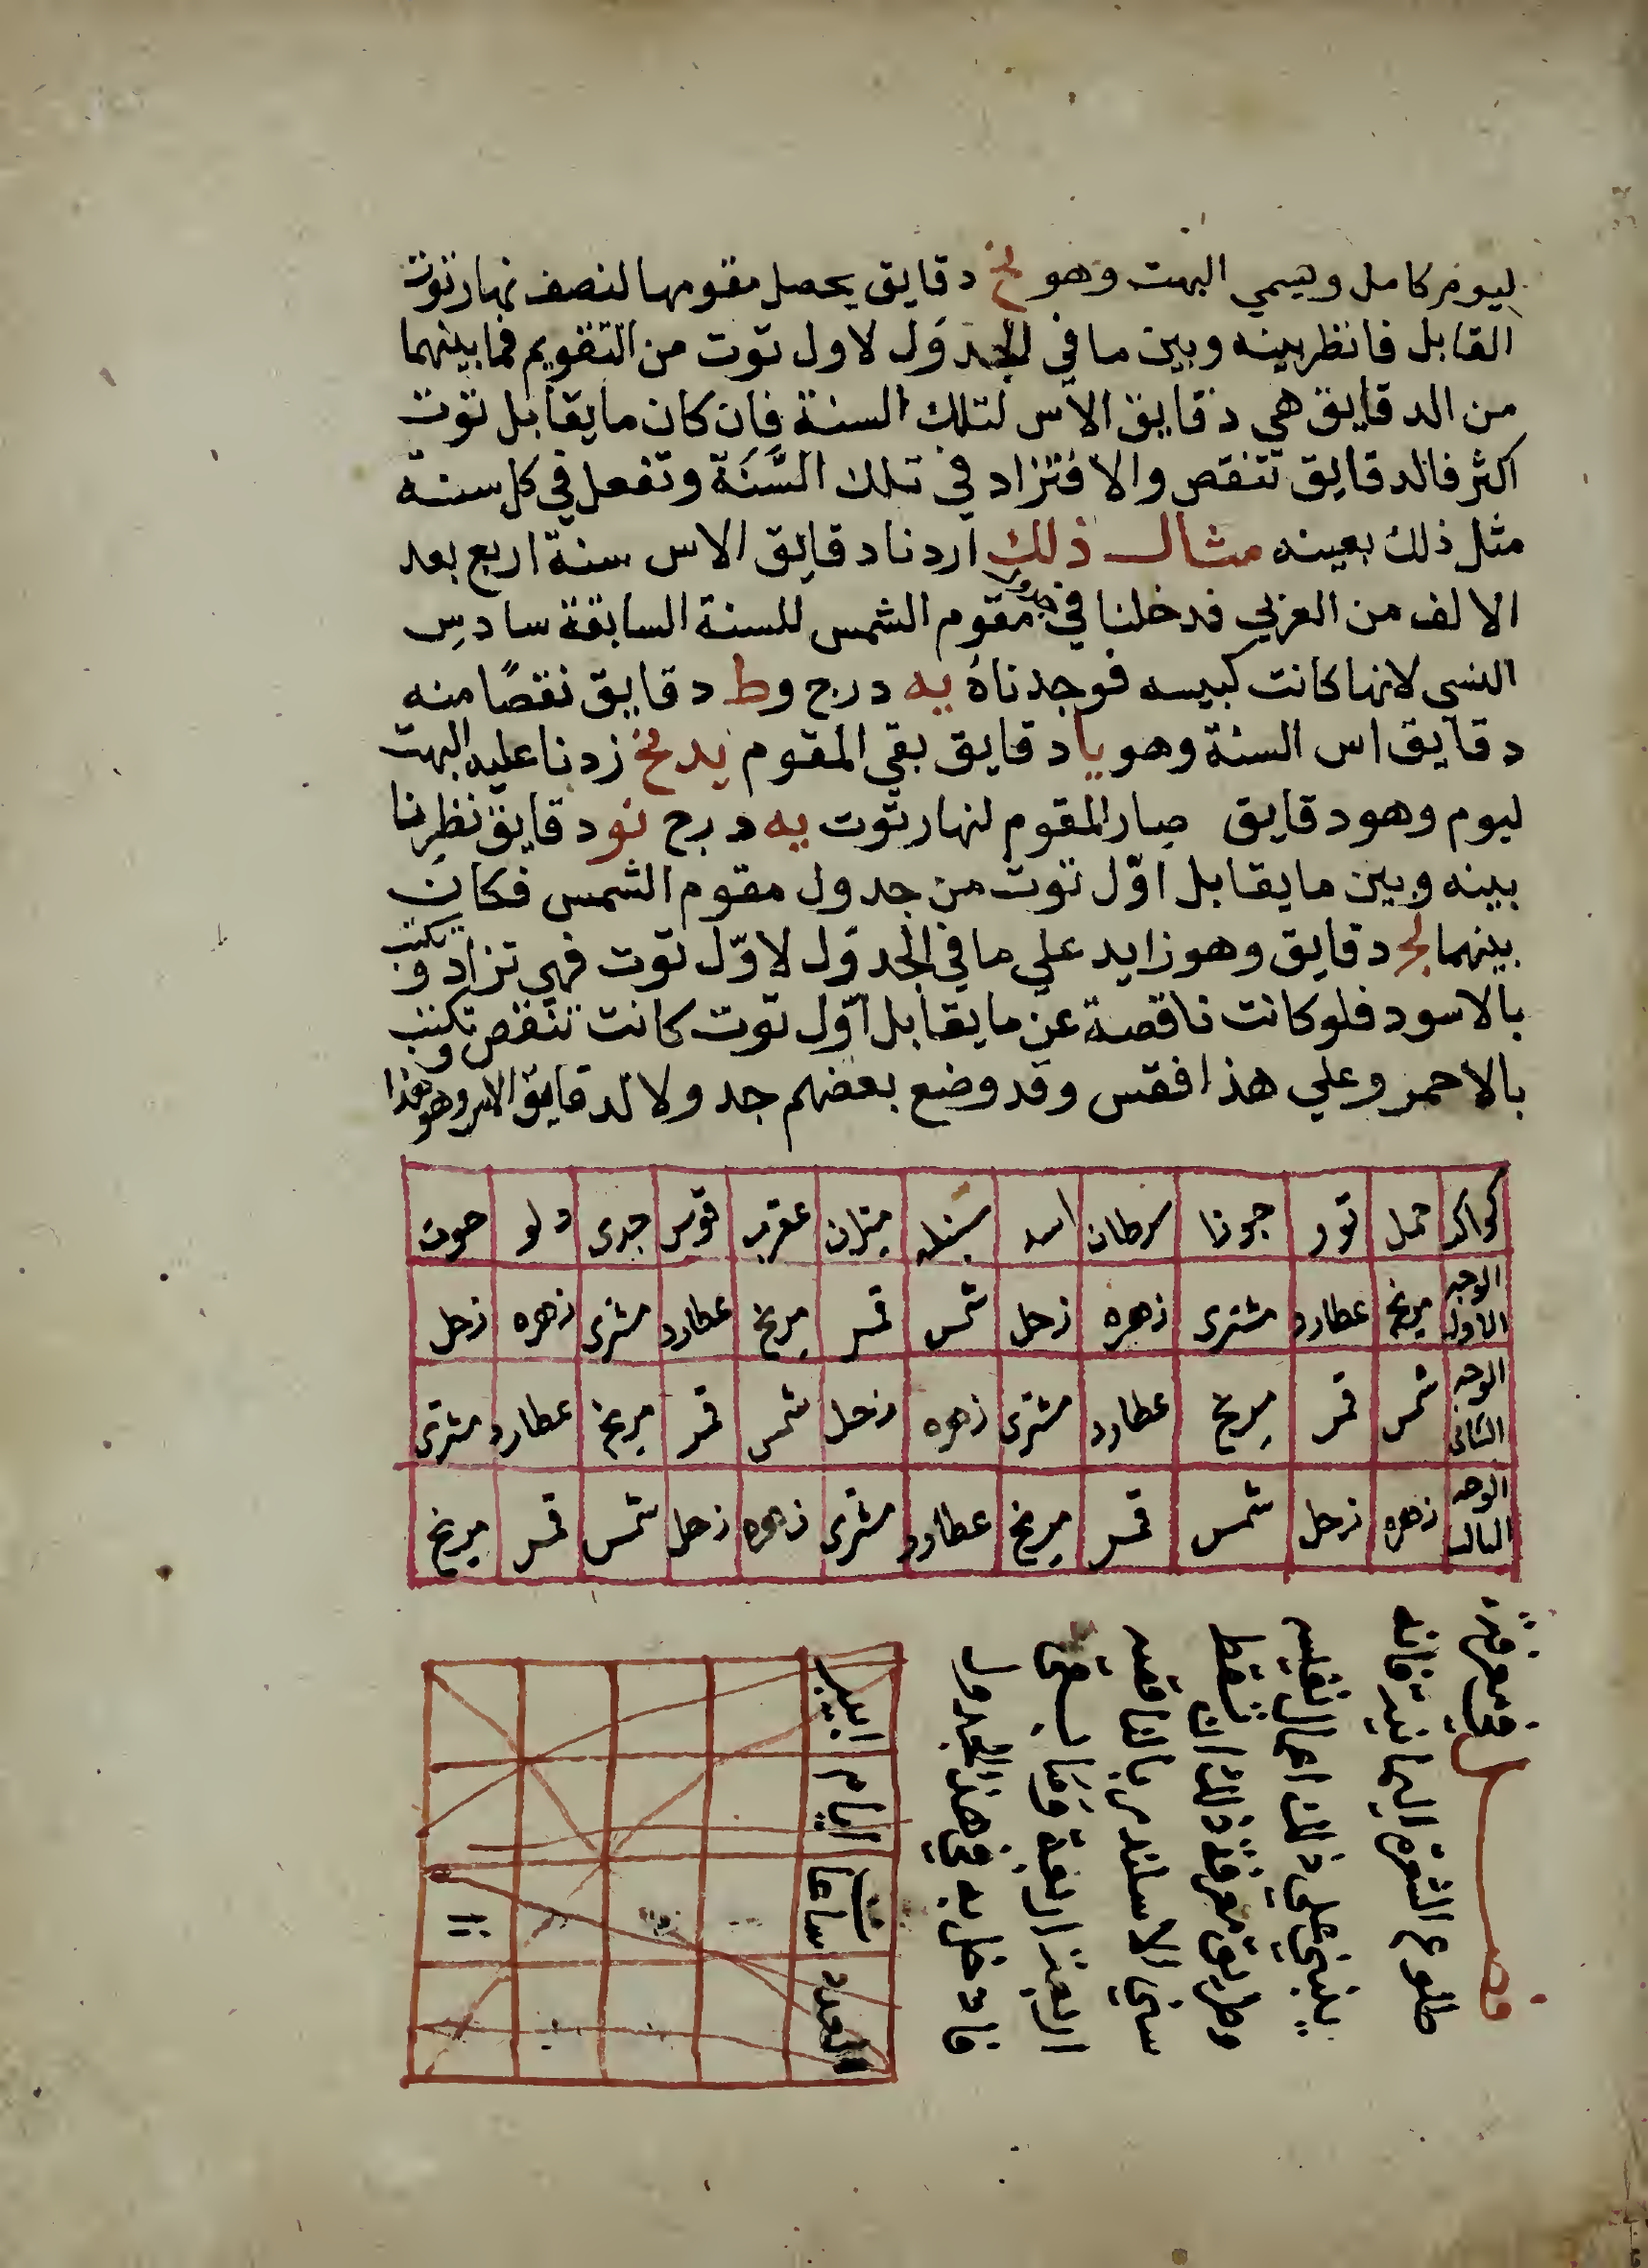 ليوم كامل ويسمي البهت وهو نح دقايق يحصل مقومها لنصف نهار توت
القابل فانظر بينه وبين ما في الجدول لاول توت من التقويم فما بينهما
من الدقايق هي دقايق الاس لتلك السنة فان كان ما يقابل توت
اكثر فالدقايق تنقص والا فتزاد في تلك السَّنَة وتفعل في كل سنة
مثل ذلك بعينه مثال ذلك اردنا دقايق الاس سنة اربع بعد
الالف من العربي فدخلنا في جدول مقوم الشمس للسنة السابقة سادس
النسي لانها كانت كبيسه فوجدناهُ يه درج وط دقايق نقصًا منه
دقايق اس السنة وهو يا دقايق بقي المقوم يد نح زدنا عليه البهت
ليوم وهو دقايق صار المقوم لنهار توت يه درج نو دقايق نظرنا
بينه وبين ما يقابل اوّل توت من جدول مقوم الشمس فكان
بينهما لج دقايق وهو زايد علي ما في الجدوَل لاوّل توت فهي تزاد وتكتب
بالاسود فلو كانت ناقصة عن ما يقابل اوّل توت كانت تنقص وتكتب
بالاحمر وعلي هذا فقس وقد وضع بعضهم جدولا لدقايق الاس وهو هذا
كواكب حمل ثور جوزا سرطان اسد سنبله ميزان عقرب قوس جدى دلو حوت
الوجه الاول مريخ عطارد مشترى زهره زحل شمس قمر مريخ عطارد مشترى زهره زحل
الوجه الثانى شمس قمر مريخ عطارد مشترى زهره زحل شمس قمر مريخ عطارد مشترى
الوجه الثالث زهره زحل شمس قمر مريخ عطارد مشترى زهره زحل شمس قمر مريخ
فصل في معرفة
طلوع الشعرة اليمانية فانه
يبني علي ذلك اعمال نفيسه
وطريق معرفة ذلك ان تسقط
سني الاسلندر بالناقصه
اربعة اربعة وما بقي
فادخل به في هذا الجدول
العدد ساعات ايام ابيب